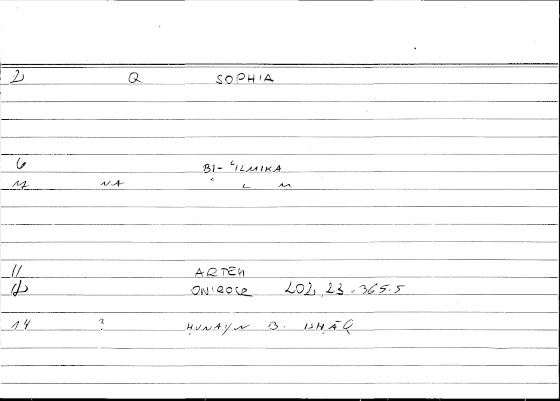 2 Q SOPHIA
6 BI-ʿILMIKA
M NA ʿ L M
11 ARTEM
12 ONIROCR 202,23-365.5
14 ? ḤUNAYN B. ISḤĀQ